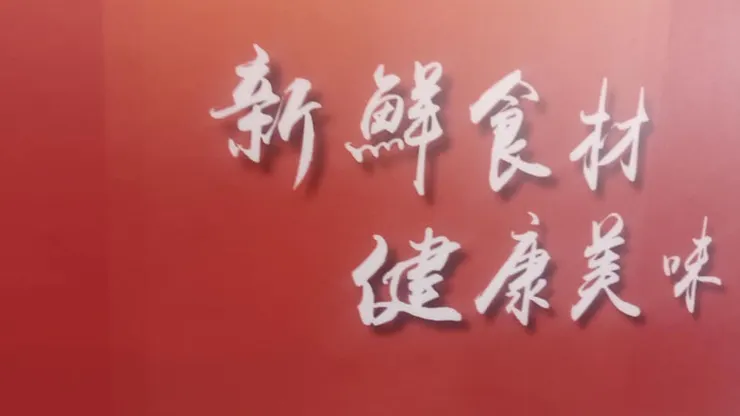 新鲜食材
健康美味